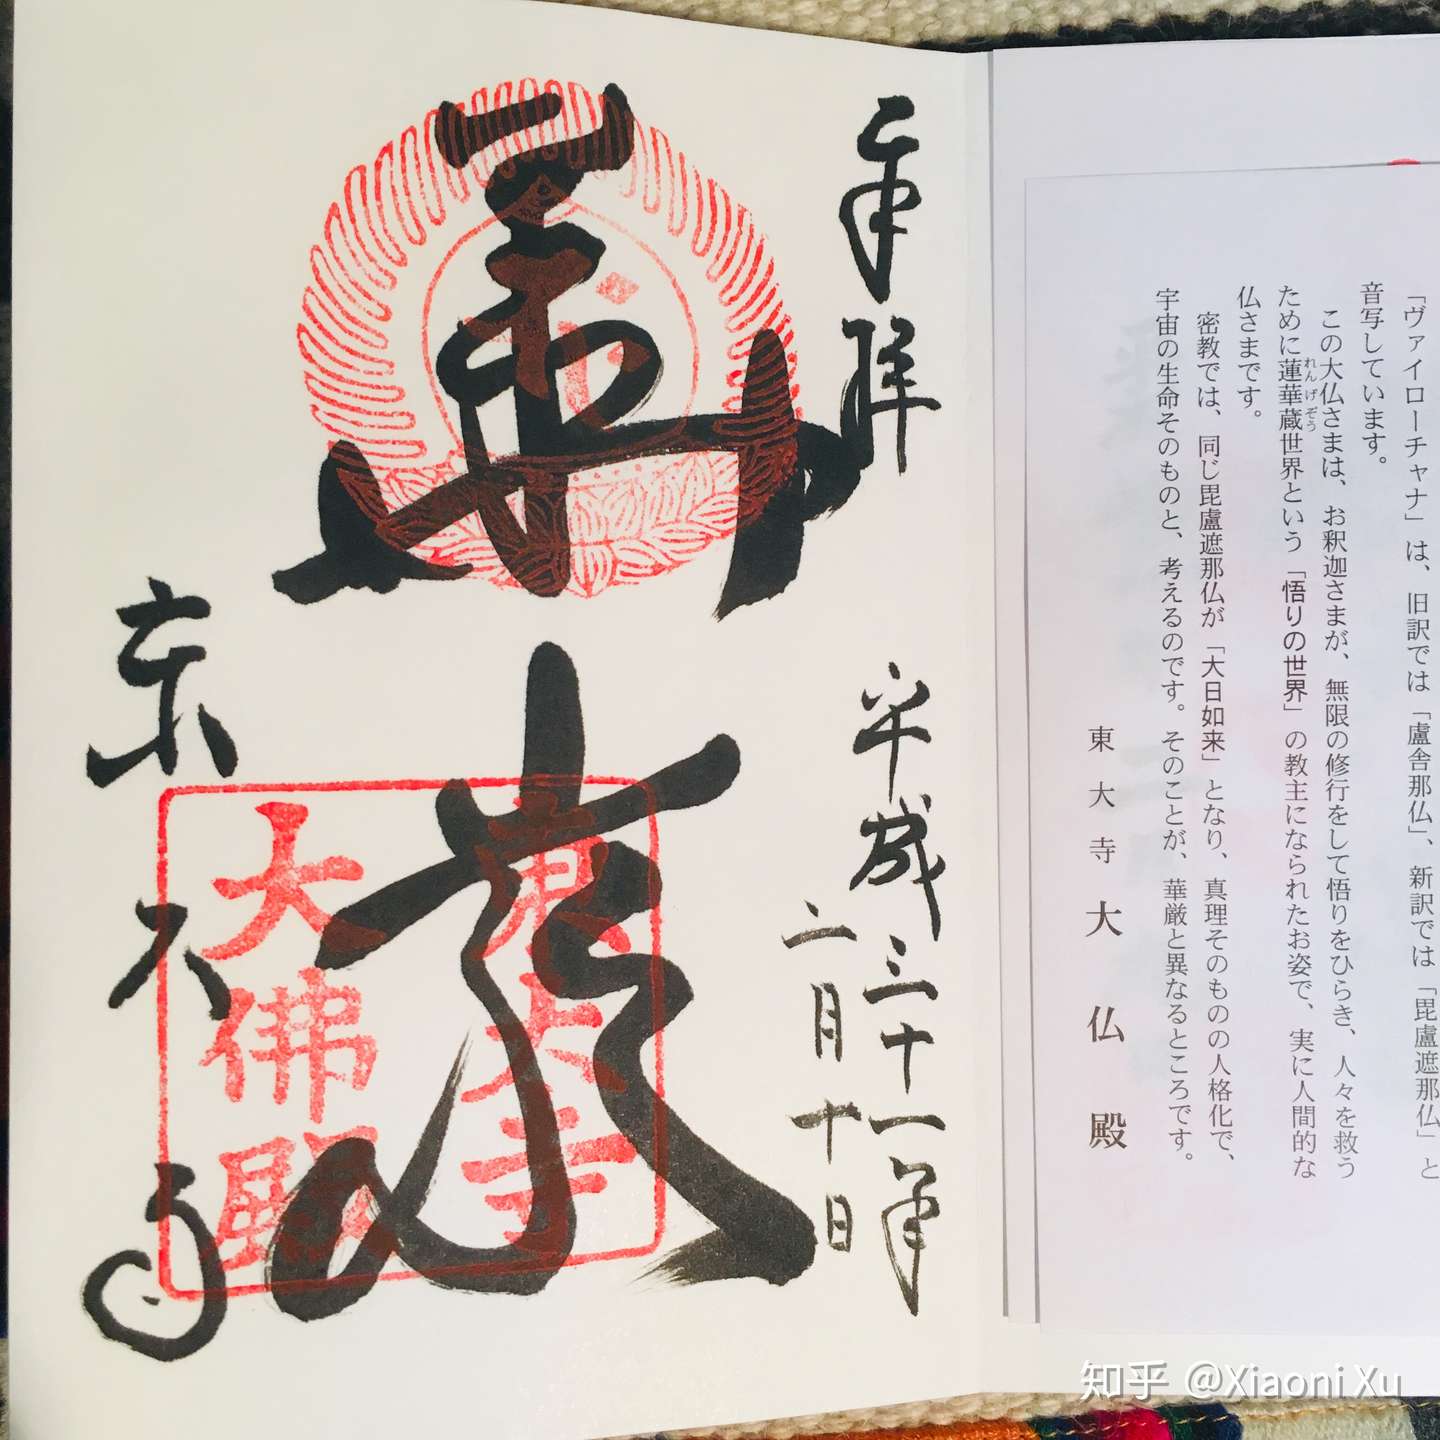 「ヴァイローチャナ」は、旧訳では「盧舎那仏」、新訳では「毘盧遮那仏」と
音写しています。
この大仏さまは、お釈迦さまが、無限の修行をして悟りをひらき、人々を救う
れんげぞう
ために蓮華蔵世界という「悟りの世界」の教主になられたお姿で、実に人間的な
仏さまです。
密教では、同じ毘盧遮那仏が「大日如来」となり、真理そのものの人格化で、
宇宙の生命そのものと、考えるのです。そのことが、華厳と異なるところです。
東大寺大仏殿
奉拝
平成三十一年
二月十日
華厳
東大寺
大佛殿
東大寺
知乎 @Xiaoni Xu